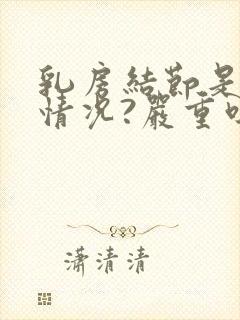 乳房結節是
情況?嚴重
瀟清清